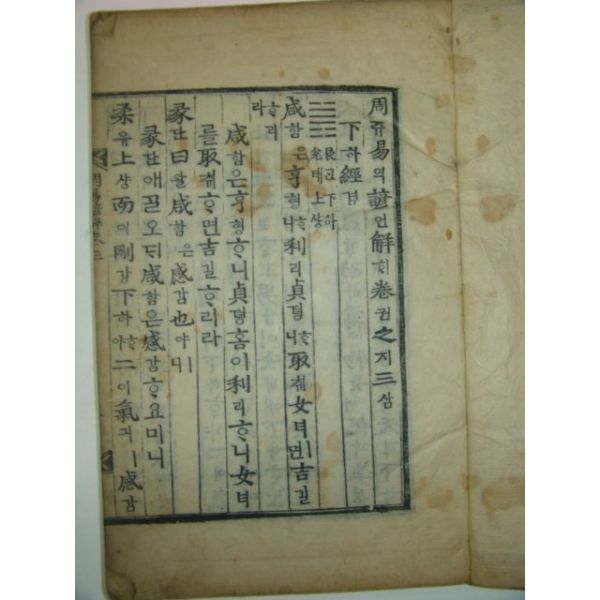 周쥬易역諺언解ᄒᆡ卷권之지三삼
下하經경
䷞ 艮간下하
兌태上샹
咸함은亨형ᄒᆞ니利리貞뎡ᄒᆞ니取ᄎᆔ女녀ㅣ면吉길
ᄒᆞ리라
咸함은亨형ᄒᆞ니貞뎡홈이利리ᄒᆞ니女녀
를取ᄎᆔᄒᆞ면吉길ᄒᆞ리라
彖단曰왈咸함은感감也야ㅣ니
彖단애ᄀᆞᆯ오ᄃᆡ咸함은感감ᄒᆞ요미니
柔유上샹而이剛강下하ᄒᆞ야二이氣긔ㅣ感감
周易諺解卷三